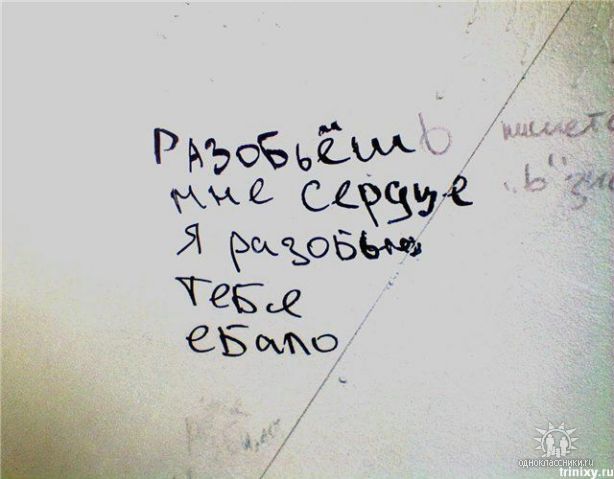 Разобьёшь
мне сердце
я разобью
тебе
ебало
"ь"
одноклассники.ru
trinixy.ru